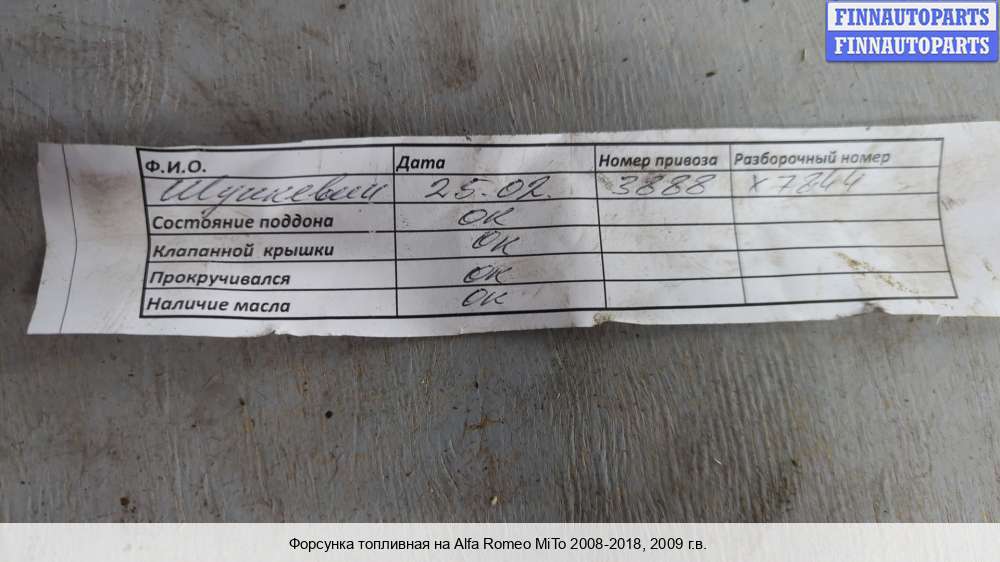 FINNAUTOPARTS
FINNAUTOPARTS
Ф.И.О. Дата Номер привоза Разборочный номер
Шушкевич 25.02. 3888 x7844
Состояние поддона ок
Клапанной крышки ок
Прокручивался ок
Наличие масла ок
Форсунка топливная на Alfa Romeo MiTo 2008-2018, 2009 г.в.